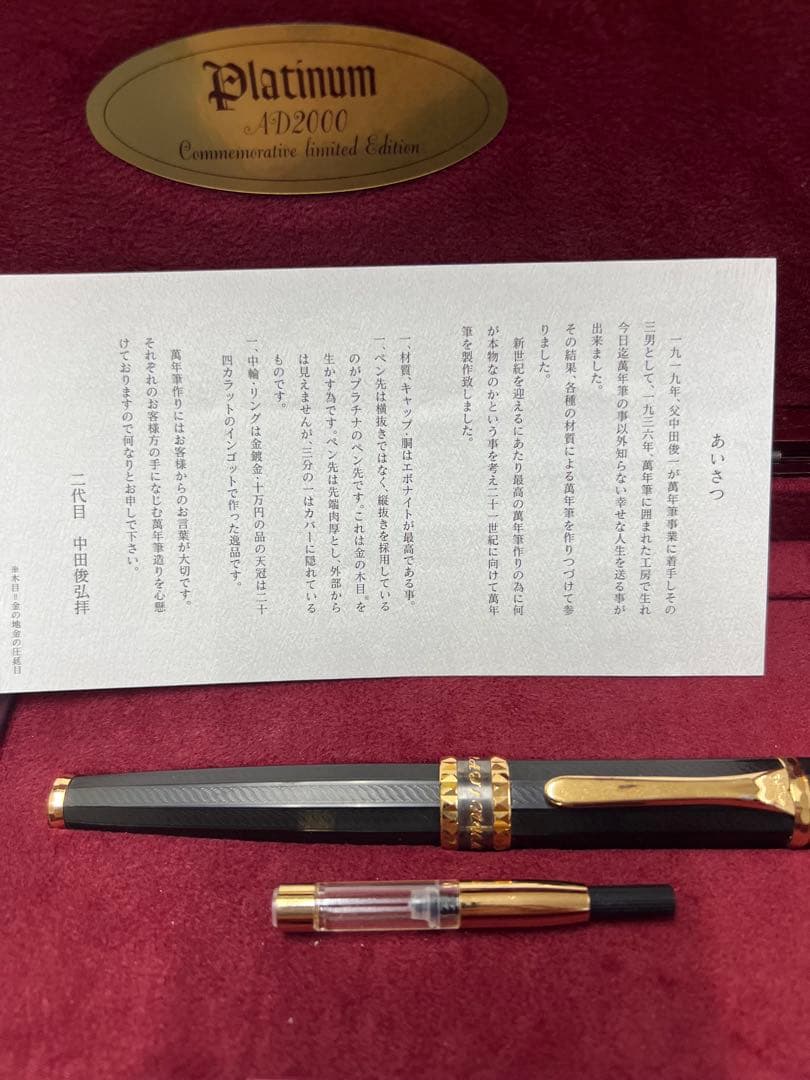 Platinum
AD2000
Commemorative limited Edition
あいさつ
一九一九年、父中田俊一が萬年筆事業に着手しその
三男として、一九三六年、萬年筆に囲まれた工房で生れ
今日迄萬年筆の事以外知らない幸せな人生を送る事が
出来ました。
その結果、各種の材質による萬年筆を作りつづけて参
りました。
新世紀を迎えるにあたり最高の萬年筆作りの為に何
が本物なのかという事を考え二十一世紀に向けて萬年
筆を製作致しました。
一、材質、キャップ、胴はエボナイトが最高である事。
一、ペン先は横抜きではなく、縦抜きを採用している
のがプラチナのペン先です。これは金の木目※を
生かす為です。ペン先は先端肉厚とし、外部から
は見えませんが、三分の一はカバーに隠れている
ものです。
一、中輪・リングは金鍍金・十万円の品の天冠は二十
四カラットのインゴットで作った逸品です。
萬年筆作りにはお客様からのお言葉が大切です。
それぞれのお客様方の手になじむ萬年筆造りを心懸
けておりますので何なりとお申しで下さい。
二代目 中田俊弘拝
※木目=金の地金の圧延目